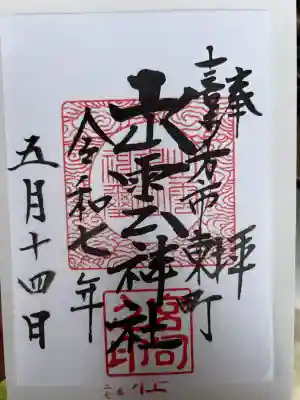 奉拝
喜多方市東町
出雲神社
令和七年
五月十四日